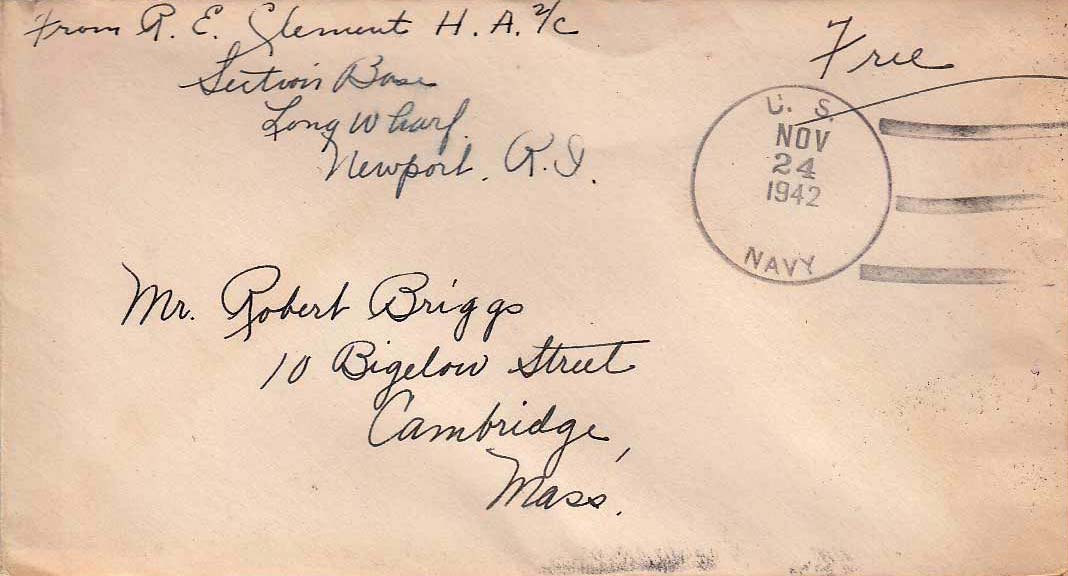 From R. E. Clement H. A. 2/c
Section Base
Long Wharf.
Newport. R.I.
Free
U. S.
NOV
24
1942
NAVY
Mr. Robert Briggs
10 Bigelow Street
Cambridge,
Mass.